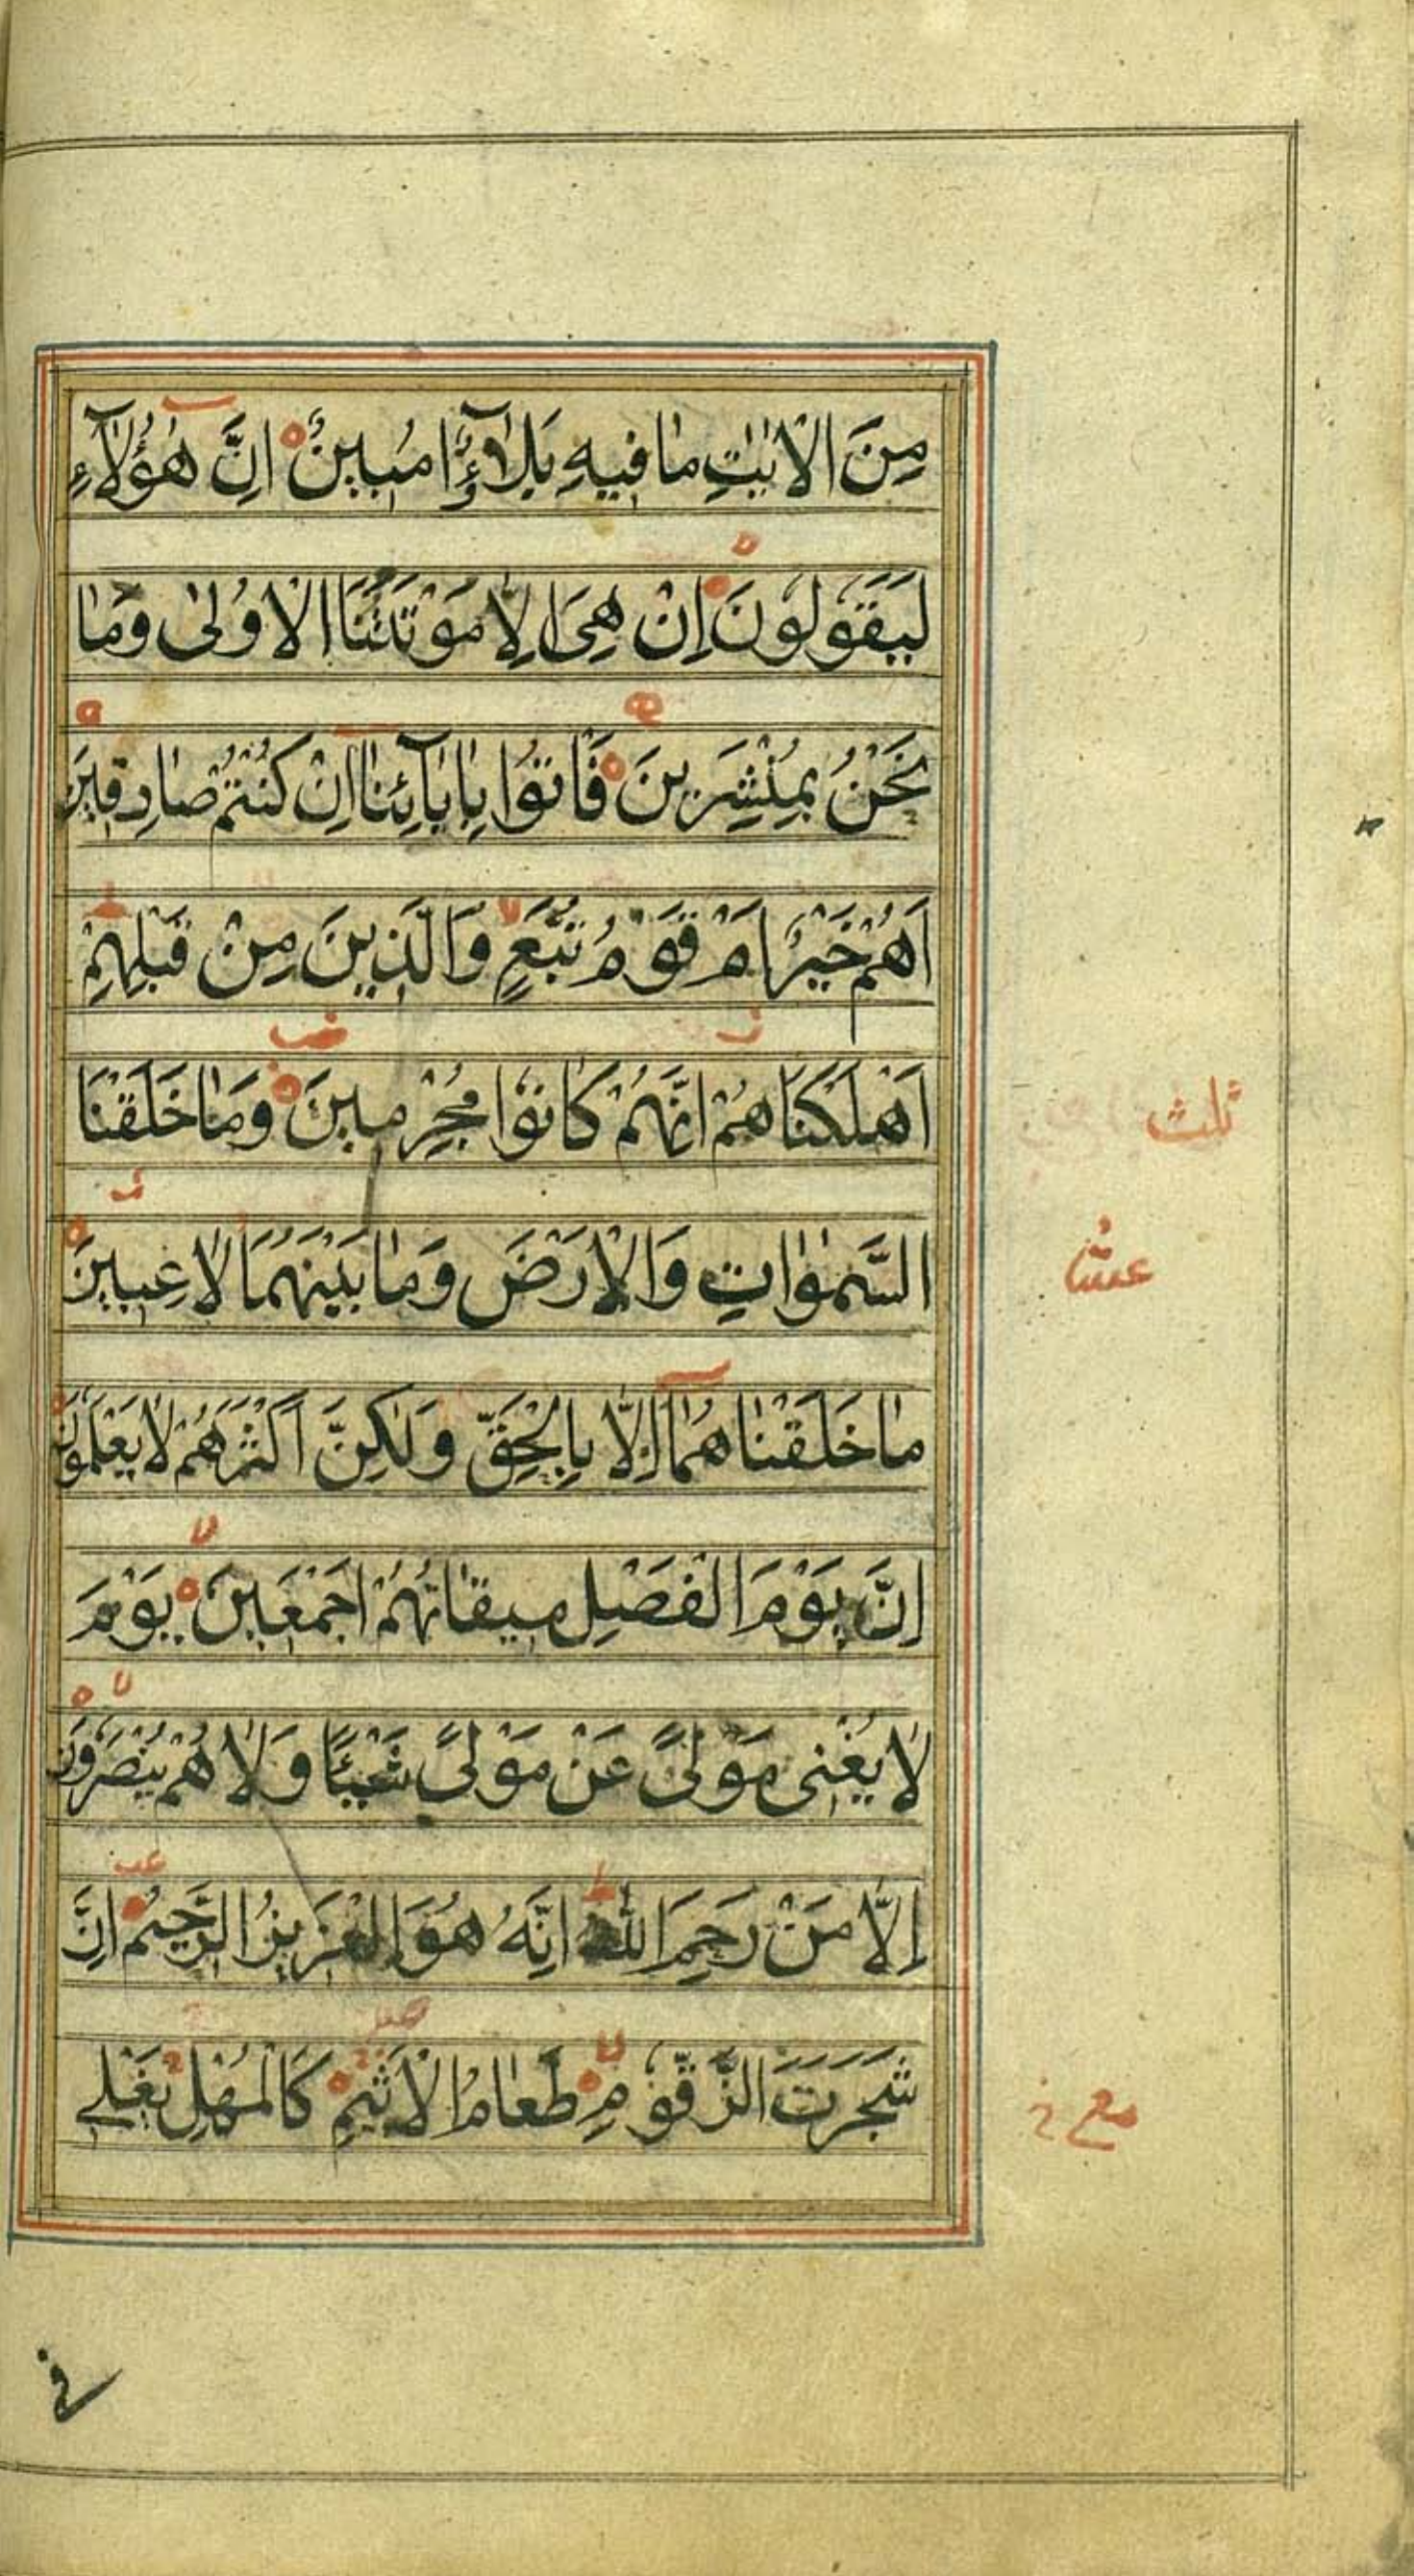 مِنَ الْاٰيٰتِ مٰا فيهِ بَلٰٓؤٌا مُبينٌ اِنَّ هٰؤُلٰٓاءِ
لَيَقُولُونَ اِنْ هِىَ اِلّٰا مَوْتَتُنَا الْاُولىٰ وَمٰا
نَحْنُ بِمُنْشَرينَ فَاْتُوا بِاٰبٰٓائِنٰا اِنْ كُنْتُمْ صٰادِقينَ
اَهُمْ خَيْرٌ اَمْ قَوْمُ تُبَّعٍ وَالَّذينَ مِنْ قَبْلِهِمْ
اَهْلَكْنٰاهُمْ اِنَّهُمْ كٰانُوا مُجْرِمينَ وَمٰا خَلَقْنَا
السَّمٰوٰاتِ وَالْاَرْضَ وَمٰا بَيْنَهُمٰا لٰاعِبينَ
مٰا خَلَقْنٰاهُمٰٓا اِلّٰا بِالْحَقِّ وَلٰكِنَّ اَكْثَرَهُمْ لٰا يَعْلَمُونَ
اِنَّ يَوْمَ الْفَصْلِ ميقٰاتُهُمْ اَجْمَعينَ يَوْمَ
لٰا يُغْنى مَوْلىً عَنْ مَوْلىً شَيْئًا وَلٰا هُمْ يُنْصَرُونَ
اِلّٰا مَنْ رَحِمَ اللّٰهُ اِنَّهُ هُوَ الْعَزيزُ الرَّحيمُ اِنَّ
شَجَرَتَ الزَّقُّومِ طَعٰامُ الْاَثيمِ كَالْمُهْلِ يَغْلى
ثلث
عشر
مع
فى